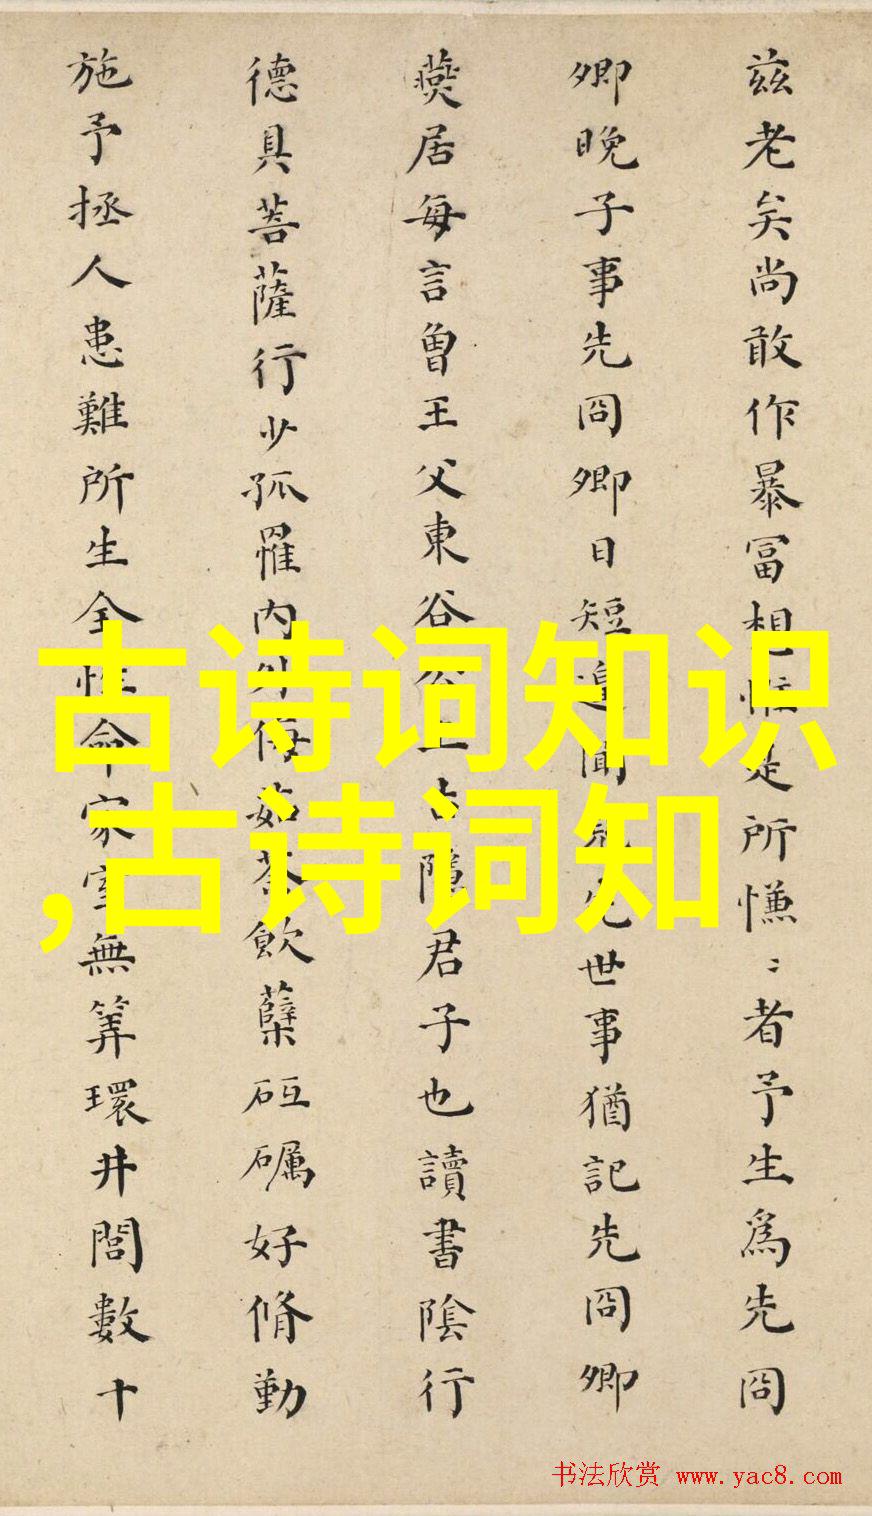 兹老矣尚敢作暴富相惟是所慊〻者予生爲先冏
卿晚子事先冏卿日短遑聞先世事猶記先冏卿
燕居每言曾王父東谷公上古隱君子也讀書陰行
德具菩薩行少孤罹内外侮茹荼飲蘖砥礪好脩勤
施予拯人患難所生全性命家室無筭環井閭數十
古诗词知识
,古诗词知
书法欣赏 www.yac8.com